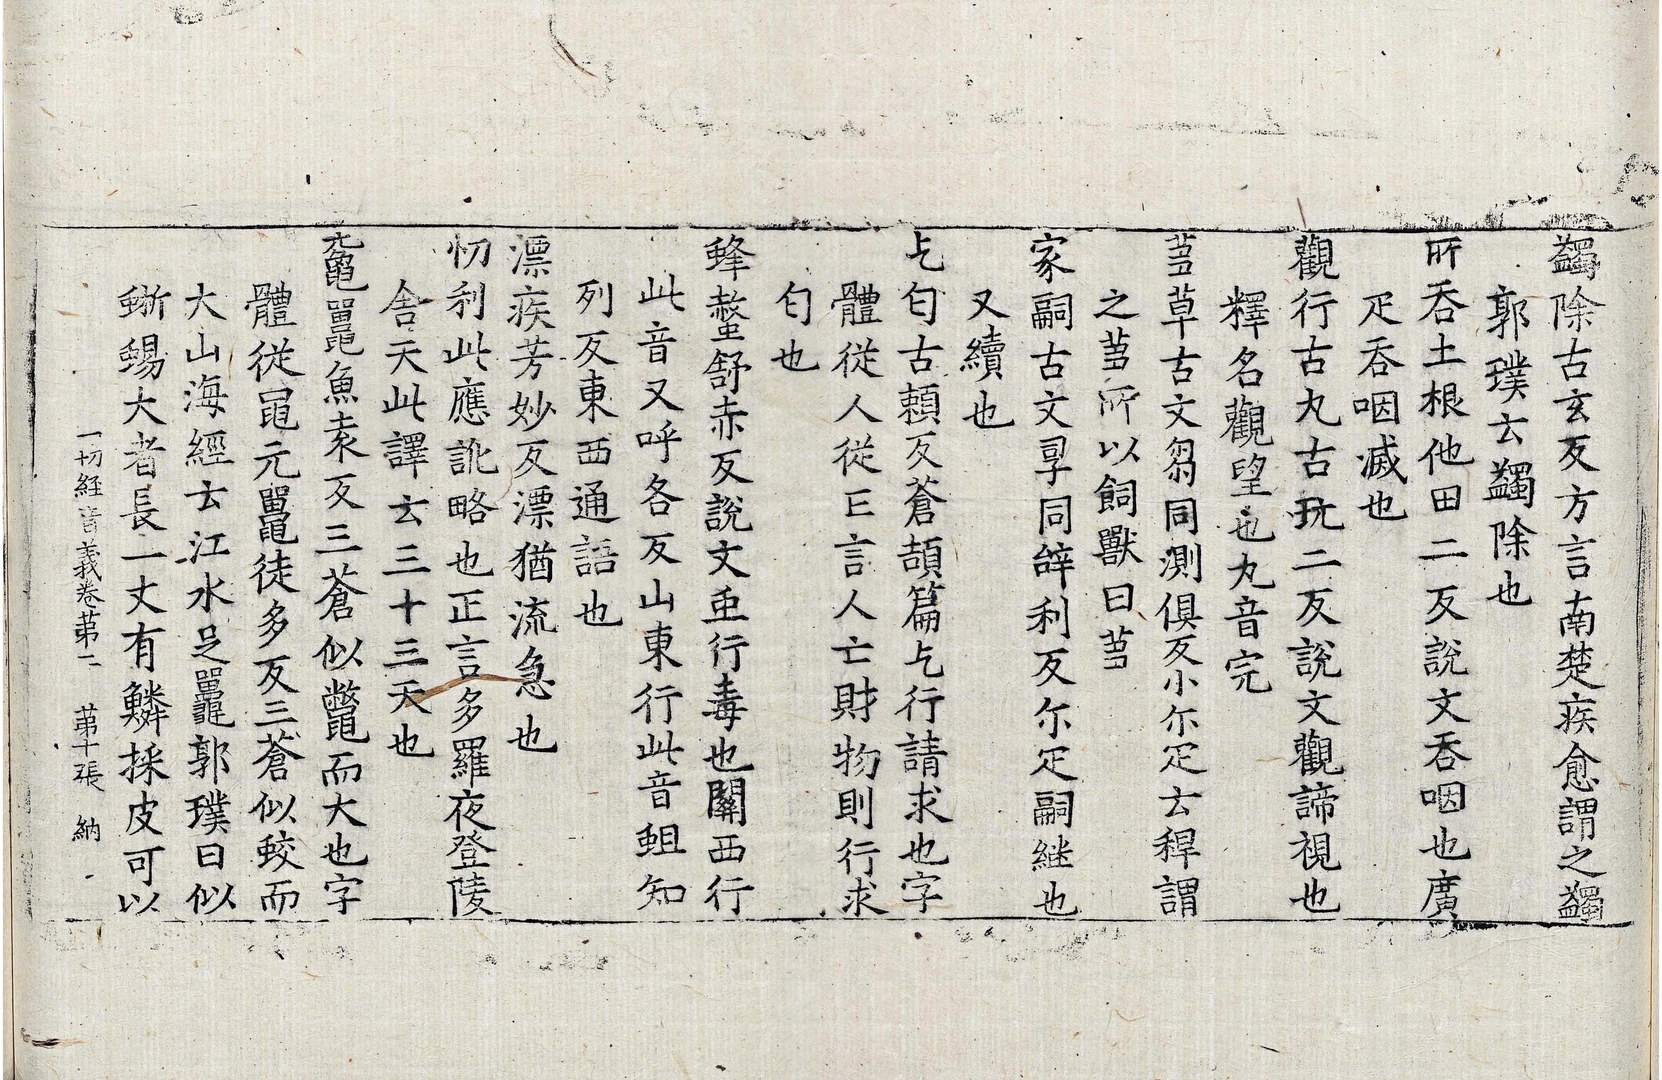 蠲除古玄反方言南楚疾愈謂之蠲
郭璞云蠲除也
所吞土根他田二反說文吞咽也廣
疋吞咽滅也
觀行古丸古玩二反說文觀諦視也
釋名觀望也丸音完
芻草古文芻同測俱反小尒疋云稈謂
之芻所以飼獸曰芻
家嗣古文孠同辝利反尒疋嗣継也
又續也
乞匂古賴反蒼頡篇乞行請求也字
體從人從亡言人亡財物則行求
匂也
蜂螫舒赤反說文䖝行毒也關西行
此音又呼各反山東行此音蛆知
列反東西通語也
漂疾芳妙反漂猶流急也
忉利此應訛略也正言多羅夜登陵
舎天此譯云三十三天也
黿鼉魚袁反三蒼似鼈而大也字
體從黽元鼉徒多反三蒼似蛟而
大山海經云江水足鼉郭璞曰似
蜥蜴大者長一丈有鱗採皮可以
一切経音義卷苐二 苐十張 納